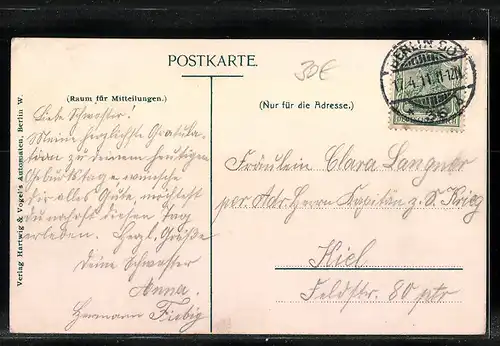 POSTKARTE.
30€
BERLIN SO
17.4.11.11-12N
* 26
(Raum für Mitteilungen.)
(Nur für die Adresse.)
Liebe Schwester!
Meine herzlichste Gratula-
tion zu deinem heutigen
Geburtstage wünsche
dir alles Gute, möchtest
du noch oft diesen Tag
erleben. Herzl. Grüße
Deine Schwester
Anna.
Hermann Fiebig
Fräulein Clara Langner
per Adr. Herrn Kapitän z. S. Krieg
Kiel
Feldstr. 80 ptr
Verlag Hartwig & Vogel's Automaten, Berlin W.